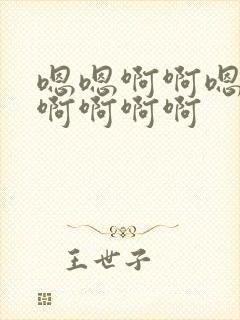 嗯嗯啊啊嗯
啊啊啊啊
王世子